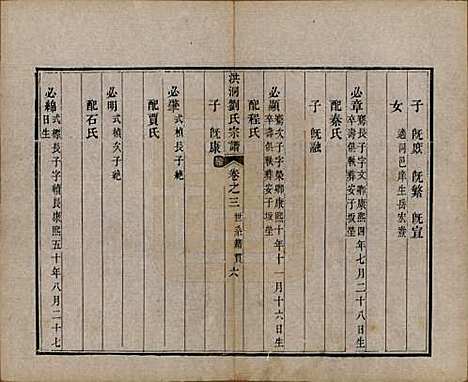 子 既庶 既繁 既宣
女 適同邑庠生岳宏壹
必章 騫長子字文聊康熙四年七月二十八日生
卒壽俱軼葬安子坂塋
配秦氏
子 既融
必顯 騫次子字榮聊康熙十年十一月十六日生
卒壽俱軼葬安子坂塋
配程氏
子 既康
洪洞劉氏宗譜 卷之三 世系籍貫 六
必肇 式楨長子絶
配賈氏
必明 式楨次子絶
配石氏
必綿 式標長子字長康熙五十年八月二十七
日生